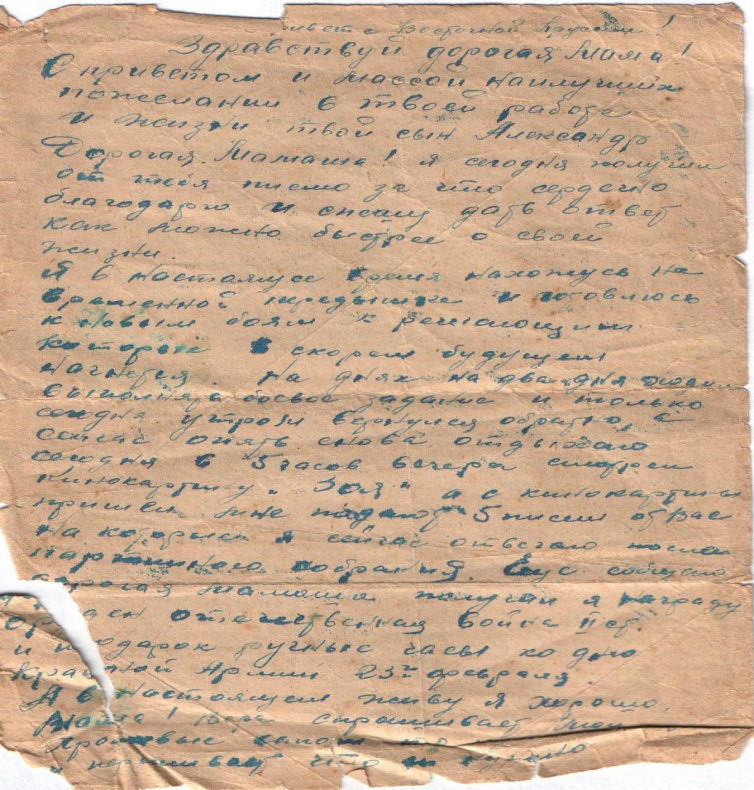 Восточной Пруссии!
Здравствуй дорогая Мама!
С приветом и массой наилучших
пожеланий в твоей работе
и жизни твой сын Александр
Дорогая Мамаша! Я сегодня получил
от тебя писмо за что сердечно
благодарю и спешу дать ответ
как можно быстрее о своей
жизни.
Я в настоящее время нахожусь на
временной передышке и готовлюсь
к новым боям к решающим
которые в скором будущем
начнутся. На днях на два дня
выполнять боевое задание и только
сегодня утром вернулся обратно, а
сейчас опять снова отдыхаю
сегодня в 5 часов вечера смотрел
кинокартину „Зоя" а с кинокартины
пришел мне подают 5 писем от Вас
на которые я сейчас отвечаю после
партийного собрания. Еще сообщаю
дорогая мамаша получил я награду
орден отечественная война II ст.
и подарок ручные часы ко дню
Красной Армии 23го февраля.
А в настоящем живу я хорошо.
Мама! Вера спрашивает
что